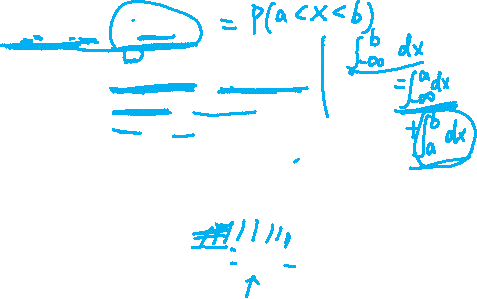 = P(a < x < b)
∫_{-∞}^{b} dx
= ∫_{-∞}^{a} dx
+ ∫_{a}^{b} dx